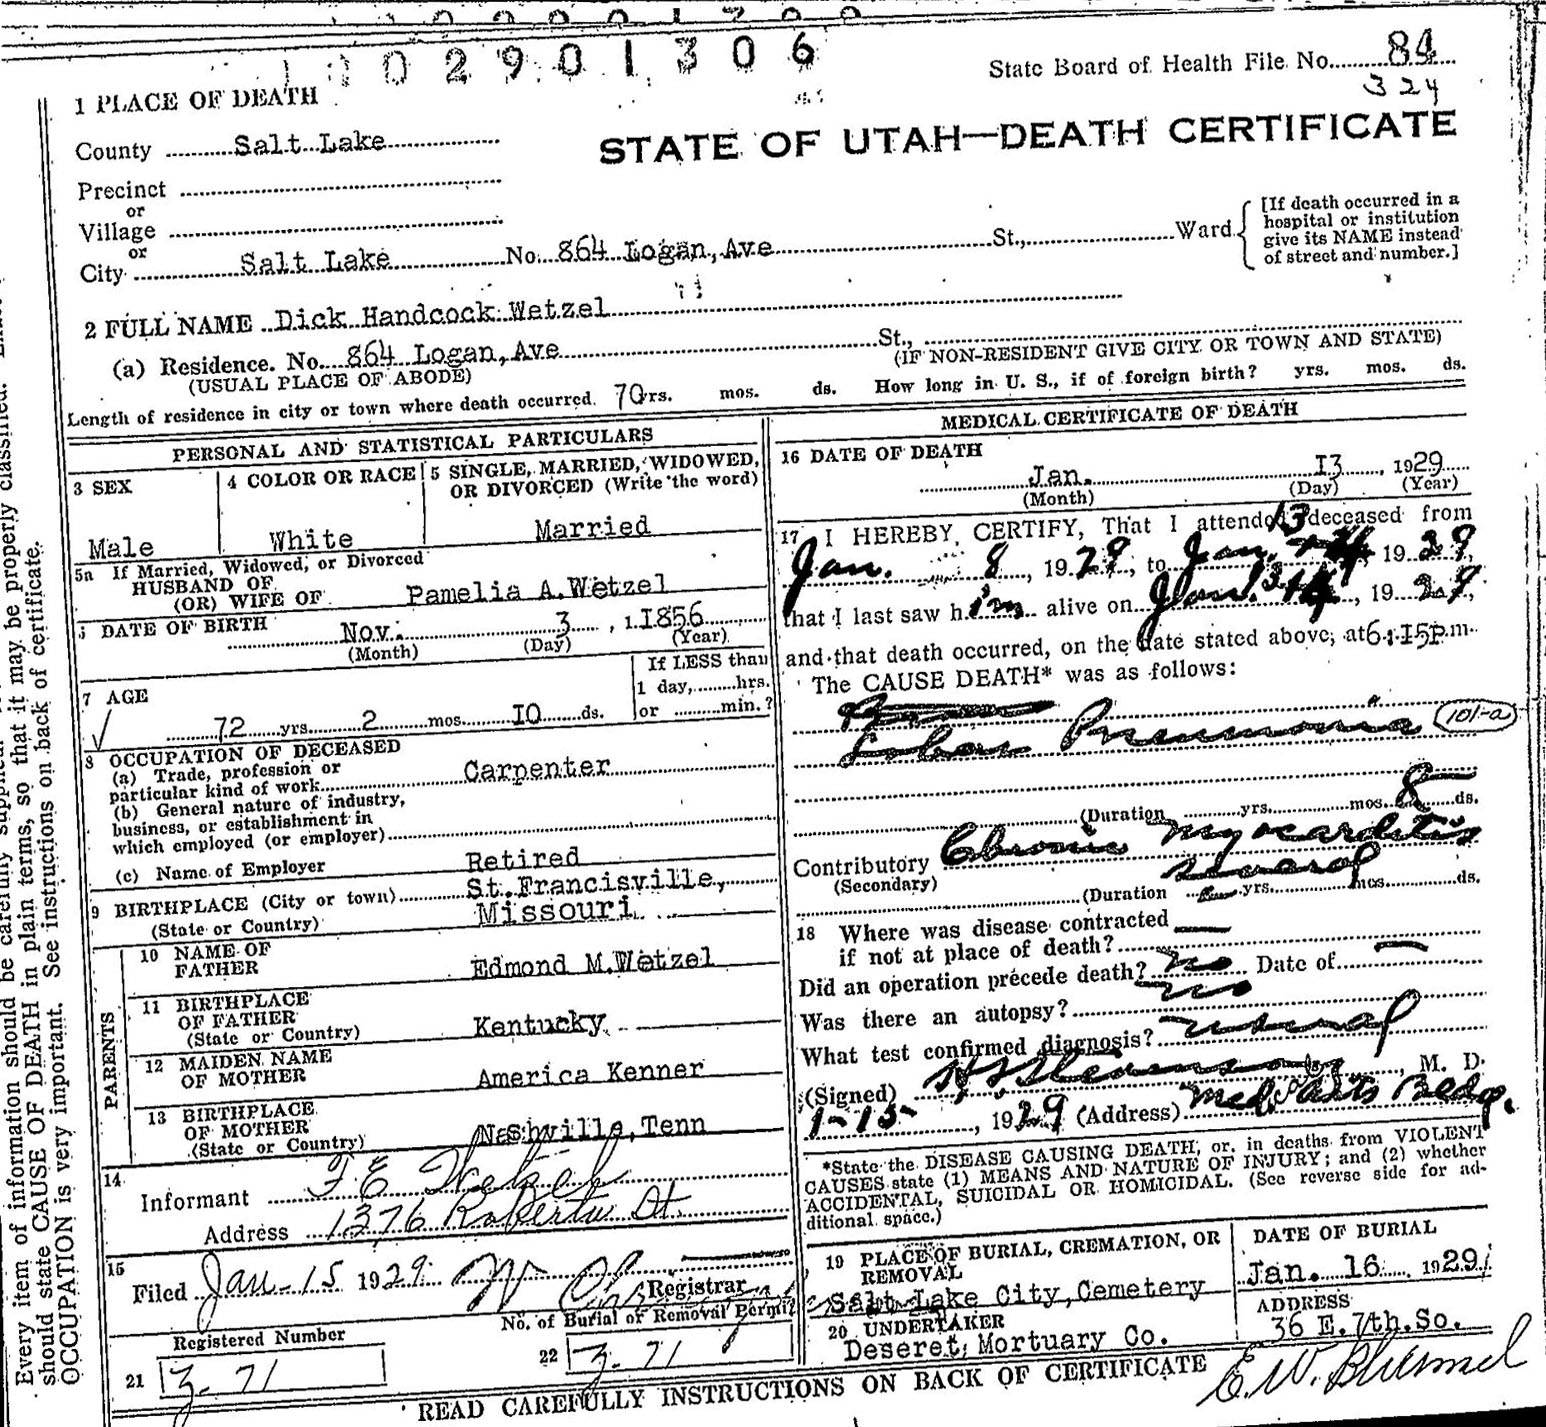 0 2 9 0 1 3 0 6
State Board of Health File No. 84
324
1 PLACE OF DEATH
STATE OF UTAH—DEATH CERTIFICATE
County Salt Lake
Precinct
or
Village
or
City Salt Lake No. 864 Logan, Ave St., Ward
[If death occurred in a
hospital or institution
give its NAME instead
of street and number.]
2 FULL NAME Dick Handcock Wetzel
(a) Residence. No. 864 Logan, Ave St.,
(USUAL PLACE OF ABODE) (IF NON-RESIDENT GIVE CITY OR TOWN AND STATE)
Length of residence in city or town where death occurred. 70rs. mos. ds. How long in U. S., if of foreign birth? yrs. mos. ds.
PERSONAL AND STATISTICAL PARTICULARS
3 SEX
Male
4 COLOR OR RACE
White
5 SINGLE, MARRIED, WIDOWED,
OR DIVORCED (Write the word)
Married
5a If Married, Widowed, or Divorced
HUSBAND OF
(OR) WIFE OF Pamelia A.Wetzel
DATE OF BIRTH Nov. 3, 1856
(Month) (Day) (Year)
7 AGE
72 yrs. 2 mos. I0 ds.
If LESS than
1 day, hrs.
or min.?
8 OCCUPATION OF DECEASED
(a) Trade, profession or
particular kind of work Carpenter
(b) General nature of industry,
business, or establishment in
which employed (or employer)
(c) Name of Employer Retired
9 BIRTHPLACE (City or town) St.Francisville,
(State or Country) Missouri
PARENTS
10 NAME OF
FATHER Edmond M.Wetzel
11 BIRTHPLACE
OF FATHER
(State or Country) Kentucky
12 MAIDEN NAME
OF MOTHER America Kenner
13 BIRTHPLACE
OF MOTHER
(State or Country) Nashville,Tenn
14
Informant F E Wetzel
Address 1376 Roberta St.
15
Filed Jan-15 1929 Registrar
No. of Burial or Removal Permit
Registered Number
21 Z-71
22 Z-71
MEDICAL CERTIFICATE OF DEATH
16 DATE OF DEATH
Jan. I3, 1929
(Month) (Day) (Year)
17 I HEREBY CERTIFY, That I attended deceased from
Jan. 8, 1929, to Jan. 13, 1929,
that I last saw him alive on Jan. 13, 1929,
and that death occurred, on the date stated above, at 6:I5P.m.
The CAUSE DEATH* was as follows:
Lobar Pneumonia 101-a
(Duration yrs. mos. 8 ds.
Contributory Chronic myocarditis
(Secondary)
several
(Duration yrs. mos. ds.
18 Where was disease contracted
if not at place of death? —
Did an operation precede death? no Date of —
Was there an autopsy? no
What test confirmed diagnosis? usual
(Signed) M. D.
1-15, 1929 (Address) Med. Arts Bldg.
*State the DISEASE CAUSING DEATH, or, in deaths from VIOLENT
CAUSES state (1) MEANS AND NATURE OF INJURY; and (2) whether
ACCIDENTAL, SUICIDAL OR HOMICIDAL. (See reverse side for ad-
ditional space.)
19 PLACE OF BURIAL, CREMATION, OR
REMOVAL
Salt Lake City,Cemetery
DATE OF BURIAL
Jan. 16, 1929
20 UNDERTAKER
Deseret Mortuary Co.
ADDRESS
36 E.7th.So.
READ CAREFULLY INSTRUCTIONS ON BACK OF CERTIFICATE
should state CAUSE OF DEATH in plain terms, so that it may be properly classified.
OCCUPATION is very important. See instructions on back of certificate.